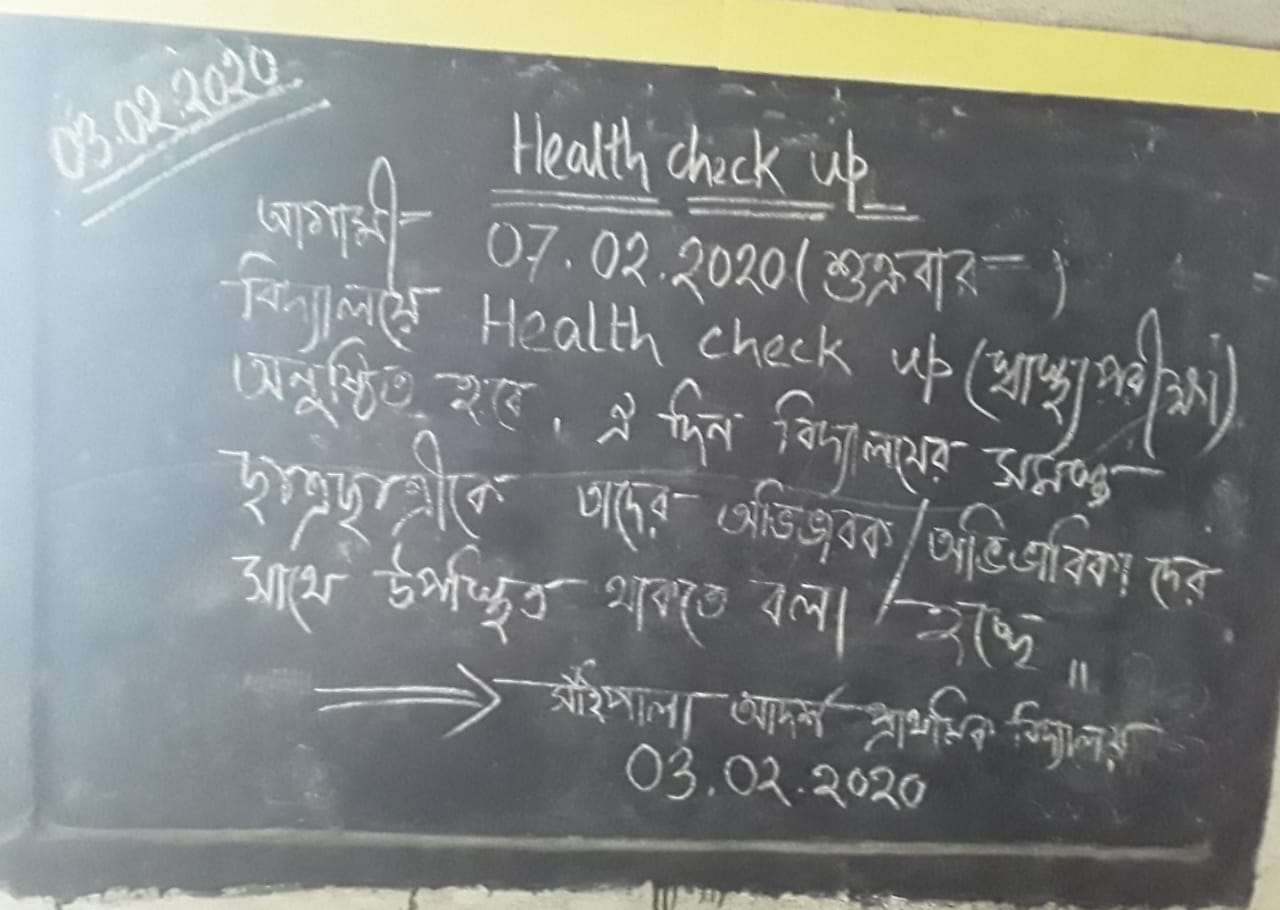 03.02.2020
Health check up
আগামী 07.02.2020 (শুক্রবার)
বিদ্যালয়ে Health check up (স্বাস্থ্য পরীক্ষা)
অনুষ্ঠিত হবে, ঐ দিন বিদ্যালয়ের সমস্ত
ছাত্রছাত্রীকে তাদের অভিভাবক / অভিভাবিকা দের
সাথে উপস্থিত থাকতে বলা হচ্ছে॥
সাঁইপালা আদর্শ প্রাথমিক বিদ্যালয়
03.02.2020